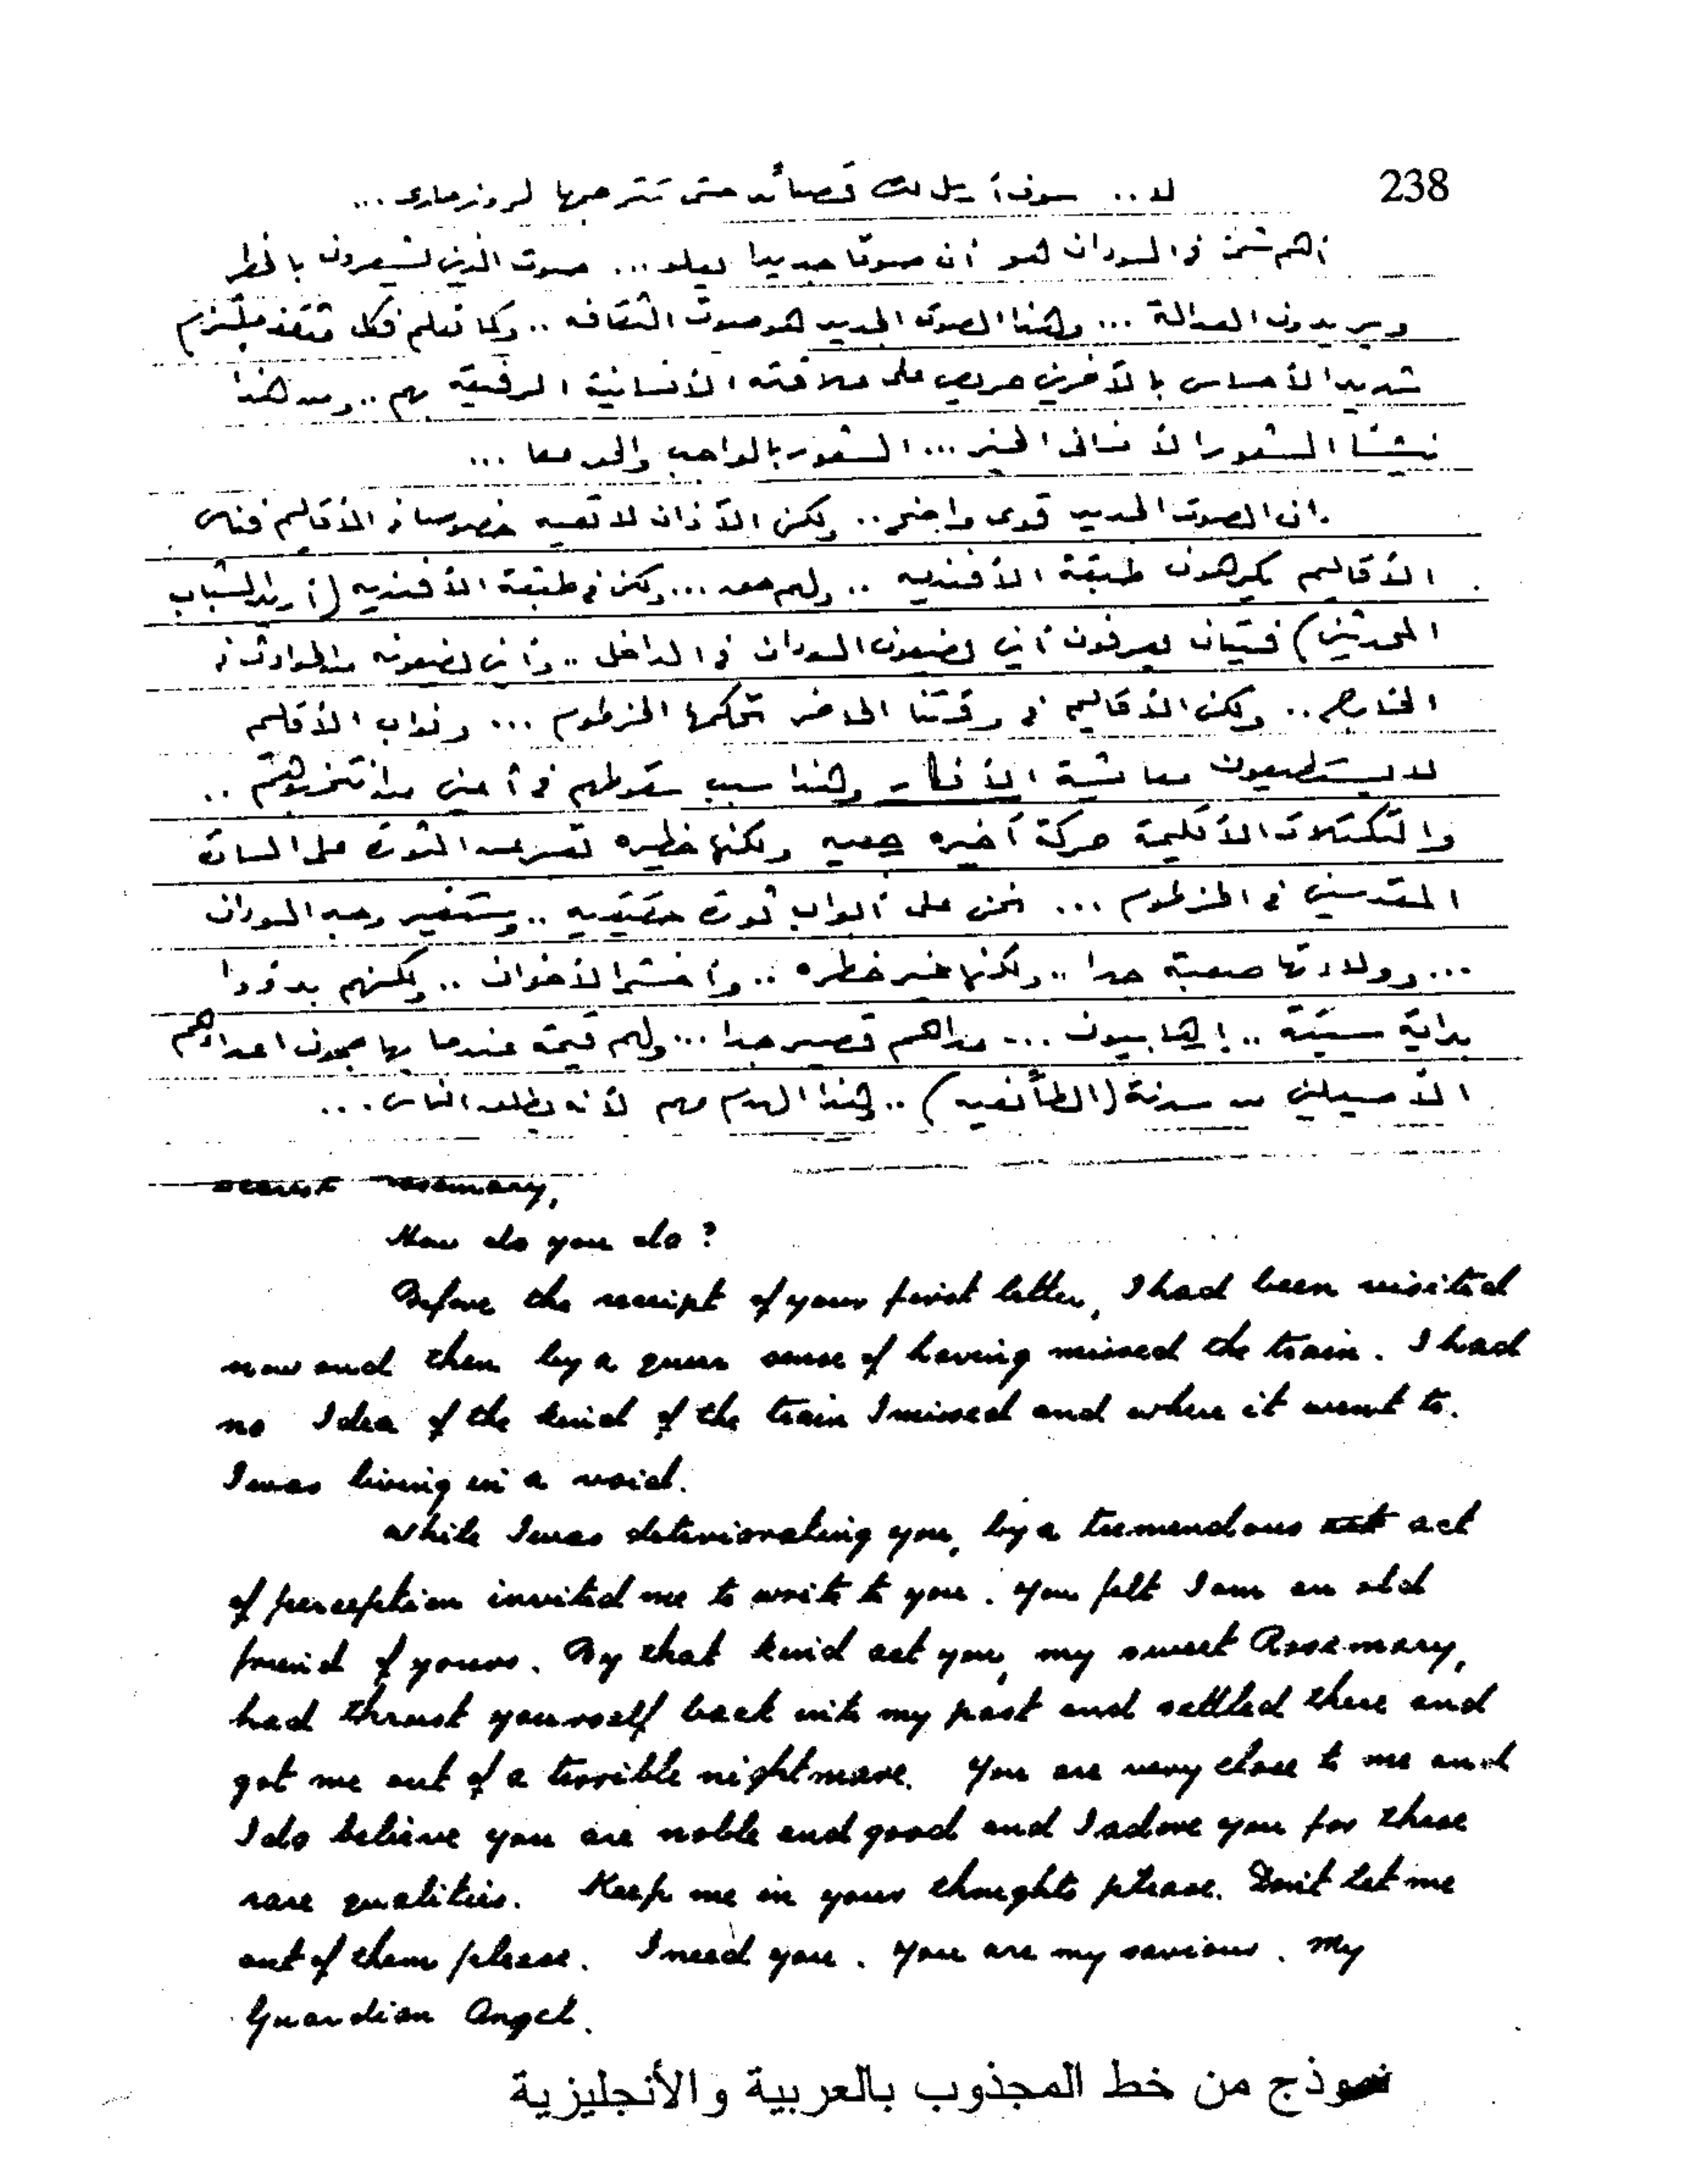 238
لا .. سوف أرسل لك قصائد حتى تترجمها لروزماري ...
أهم شئ في السودان هو أن صوتا جديدا يعلو ... صوت الذين يشعرون بالخطر
ويريدون العدالة ... وهذا الصوت الجديد هو صوت الثقافه .. وكما تعلم فكل مثقف ملتزم
شديد الأحساس بالآخرين حريص على علاقته الأنسانية الرفيعة بهم .. ومن هذا
ينشأ الشعور الأنساني الخير ... الشعور بالواجب والحق معا ...
ان الصوت الجديد قوى واضح .. ولكن الآذان لا تعيه خصوصا في الأقاليم فناس
الأقاليم يكرهون طبقة الأفنديه .. ولهم حق ... ولكن في طبقة الأفنديه (أريد الشباب
المحدثين) فتيان يعرفون أين يضعون السودان في الداخل .. وأين يضعونه من الحوادث في
الخارج .. ولكن الأقاليم في وقتنا الحاضر تحكمها الخرطوم ... ونواب الأقاليم
لا يستطيعون معايشة الأفكار وهذا سبب سقوطهم في أعين من انتخبوهم ..
والتكتلات الأقليمية حركة أخيره ولكنها خطيره تسرع الثورة على السادة
المقدسين في الخرطوم ... نحن على أبواب ثورة حقيقيه .. وستغير وجه السودان
... وولادتها صعبة جدا .. ولكنها غير خطره .. وأخشى الأخوان .. ولكنهم بدؤوا
بداية سيئة .. إرهابيون ... مداهم قصير جدا ... ولهم قيمة عندما يهاجمون اعداءهم
الأصيلين من سدنة (الطائفيه) .. هذا الهدم مهم لأنه يطلق الناس ...
Dearest Rosemary,
How do you do ?
Before the receipt of your first letter, I had been visited
now and then by a queer sense of having missed the train. I had
no Idea of the kind of the train I missed and where it went to.
I was living in a void.
While I was deteriorating you, by a tremendous act
of perception invited me to write to you. You felt I am an old
friend of yours. By that kind act you, my sweet Rosemary,
had thrust yourself back into my past and settled there and
got me out of a terrible nightmare. You are very close to me and
I do believe you are noble and good and I adore you for these
rare qualities. Keep me in your thoughts please. Don't let me
out of them please. I need you. You are my saviour. My
Guardian Angel.
نموذج من خط المجذوب بالعربية والأنجليزية